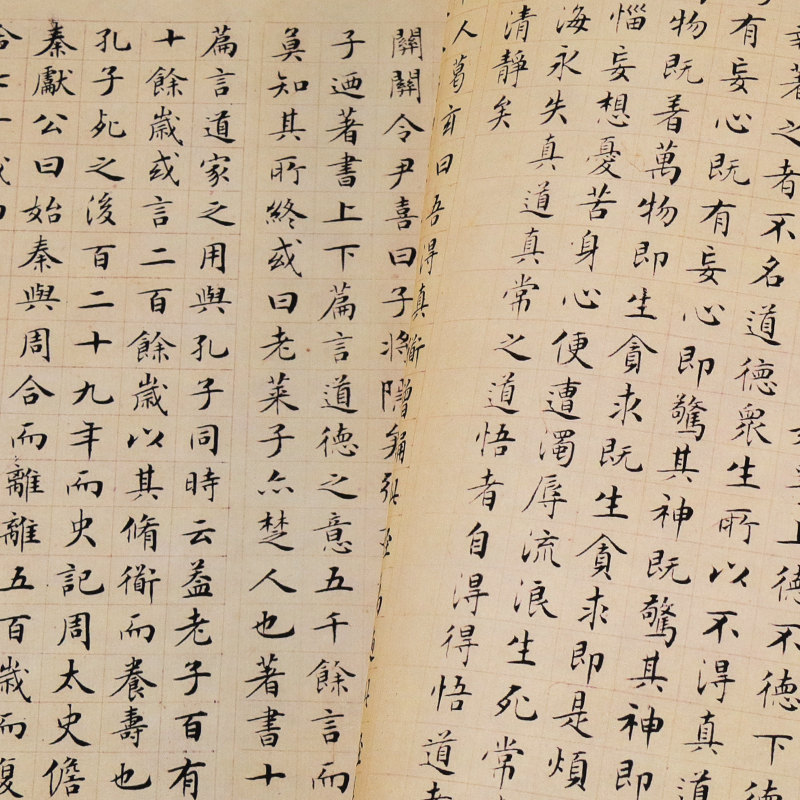 上德不德下德
著之者不名道德眾生所以不得真道
有妄心既有妄心即驚其神既驚其神即
物既著萬物即生貪求既生貪求即是煩
惱妄想憂苦身心便遭濁辱流浪生死常
海永失真道真常之道悟者自得得悟道
清靜矣
人葛玄曰吾得真
關關令尹喜曰子將隱
子迺著書上下篇言道德之意五千餘言而
莫知其所終或曰老萊子亦楚人也著書十
篇言道家之用與孔子同時云蓋老子百有
十餘歲或言二百餘歲以其脩術而養壽也
孔子死之後百二十九年而史記周太史儋
秦獻公曰始秦與周合而離離五百歲而復